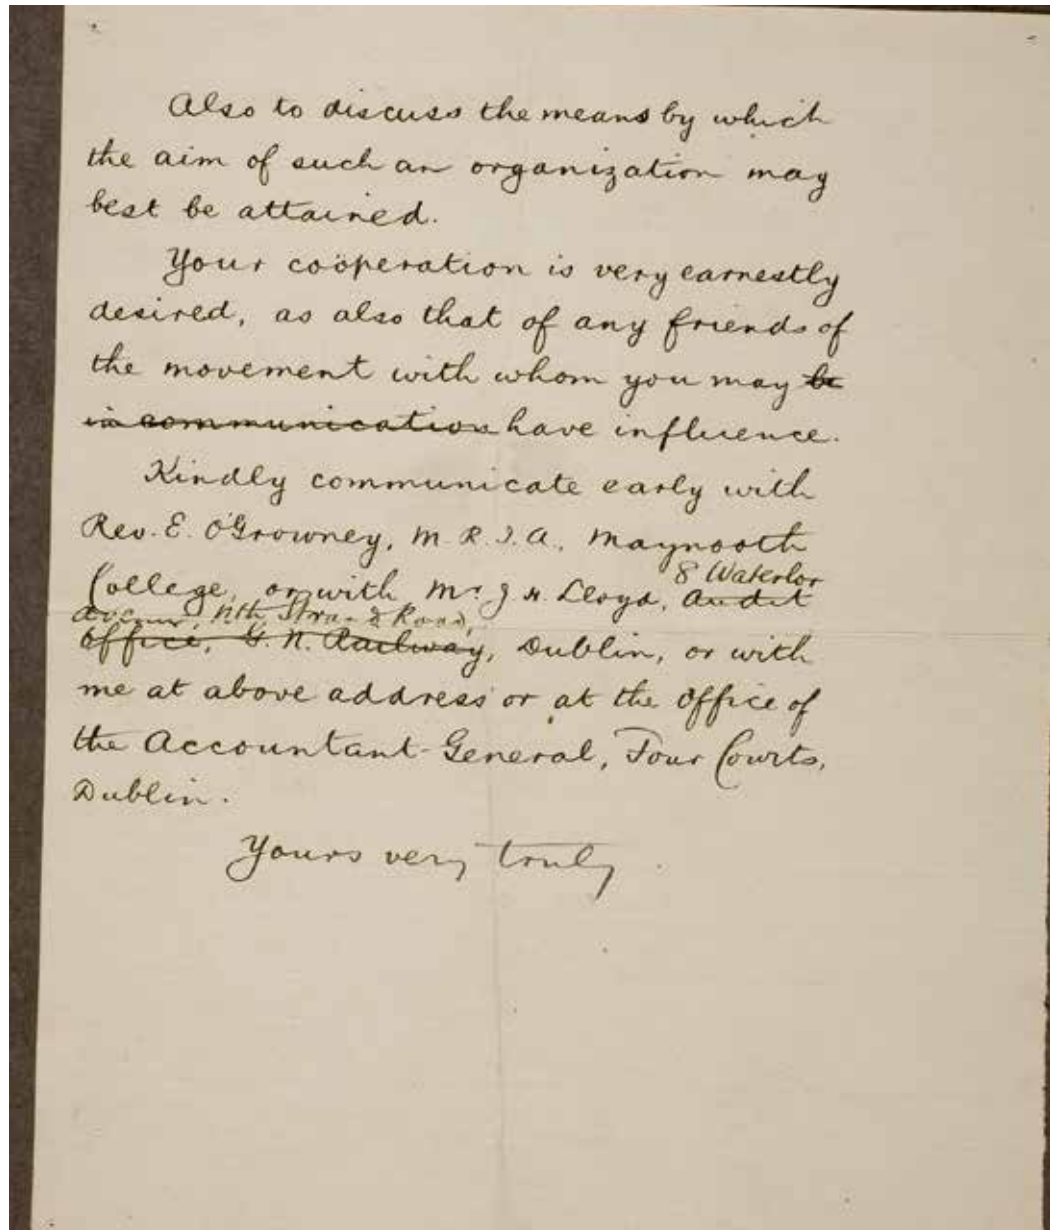 Also to discuss the means by which
the aim of such an organization may
best be attained.
Your coöperation is very earnestly
desired, as also that of any friends of
the movement with whom you may be
in communication have influence.
Kindly communicate early with
Rev. E. O'Growney, M. R. I. A., Maynooth
8 Waterloo
College, or with Mr J. H. Lloyd, Audit
Nth Strand Road,
Office, G. N. Railway, Dublin, or with
me at above address or at the Office of
the Accountant-General, Four Courts,
Dublin.
Yours very truly